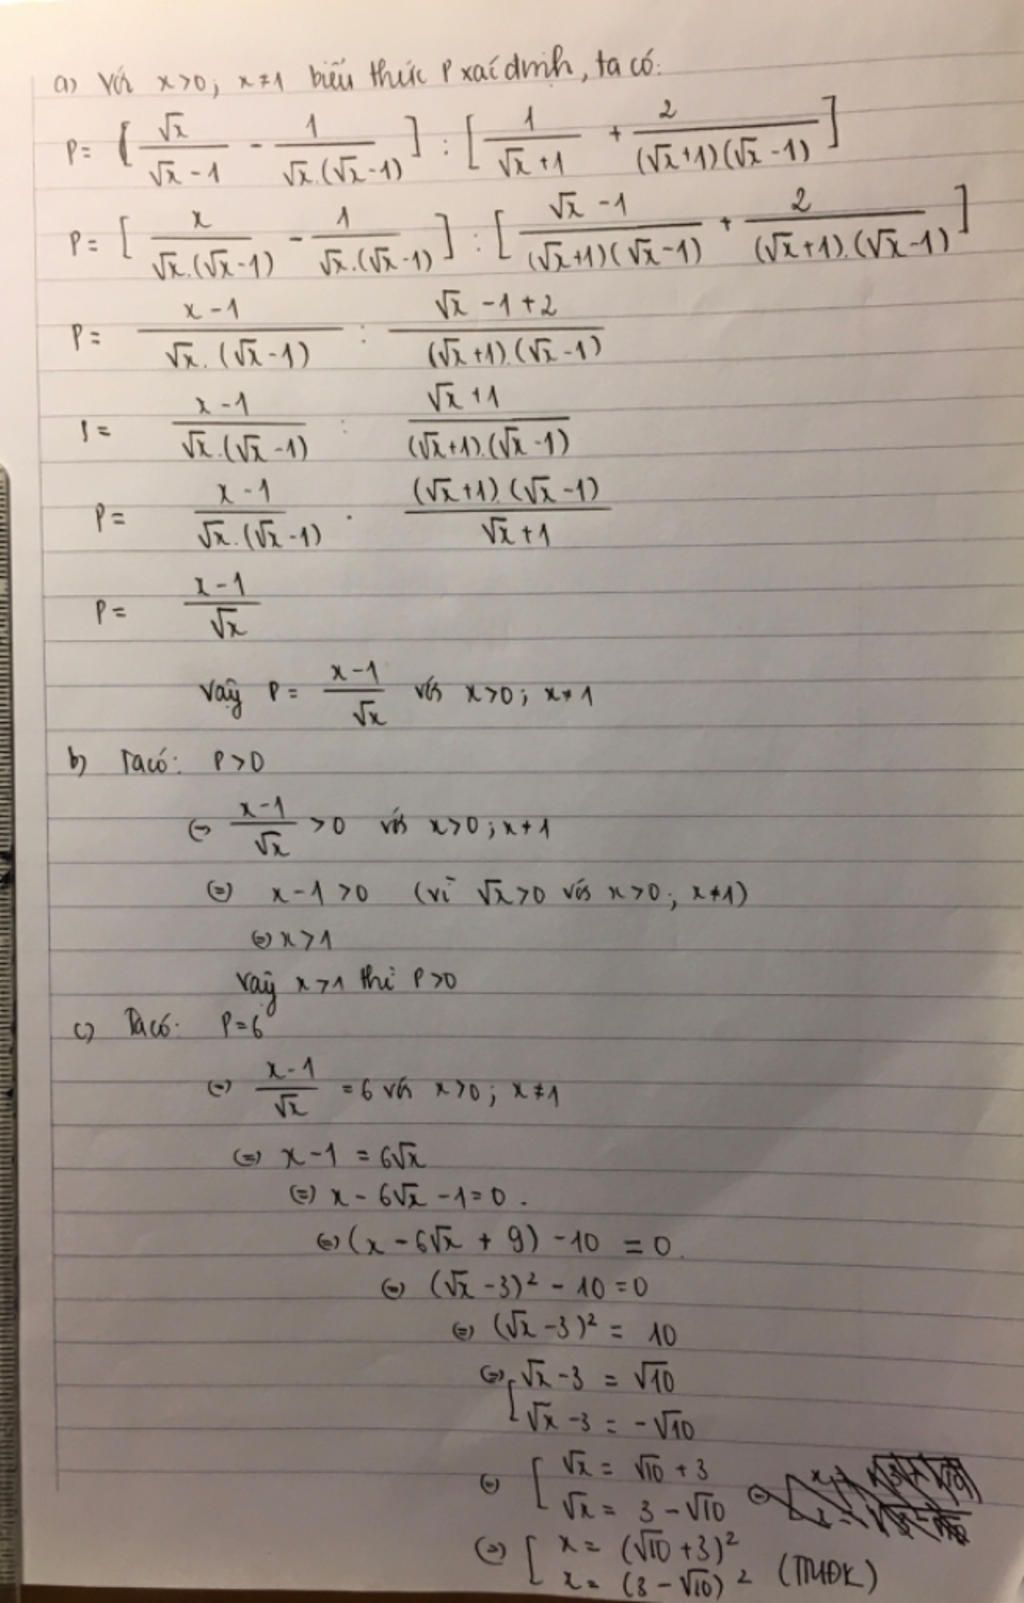 a) Với x>0; x≠1 biểu thức P xác định, ta có:
P= [√x/(√x-1) - 1/(√x.(√x-1))] : [1/(√x+1) + 2/((√x+1)(√x-1))]
P= [x/(√x.(√x-1)) - 1/(√x.(√x-1))] : [(√x-1)/((√x+1)(√x-1)) + 2/((√x+1).(√x-1))]
P= (x-1)/(√x.(√x-1)) : (√x-1+2)/((√x+1).(√x-1))
P= (x-1)/(√x.(√x-1)) : (√x+1)/((√x+1).(√x-1))
P= (x-1)/(√x.(√x-1)) . ((√x+1).(√x-1))/(√x+1)
P= (x-1)/√x
Vậy P= (x-1)/√x với x>0; x≠1
b) Ta có: P>0
⇔ (x-1)/√x >0 với x>0; x≠1
⇔ x-1>0 (vì √x>0 với x>0; x≠1)
⇔ x>1
Vậy x>1 thì P>0
c) Ta có: P=6
⇔ (x-1)/√x = 6 với x>0; x≠1
⇔ x-1 = 6√x
⇔ x-6√x-1=0.
⇔ (x-6√x+9)-10=0.
⇔ (√x-3)²-10=0
⇔ (√x-3)² = 10
⇔ [√x-3 = √10
[√x-3 = -√10
⇔ [√x = √10+3
[√x = 3-√10 ⇔
⇔ [x = (√10+3)²
[x = (3-√10)² (TMĐK)